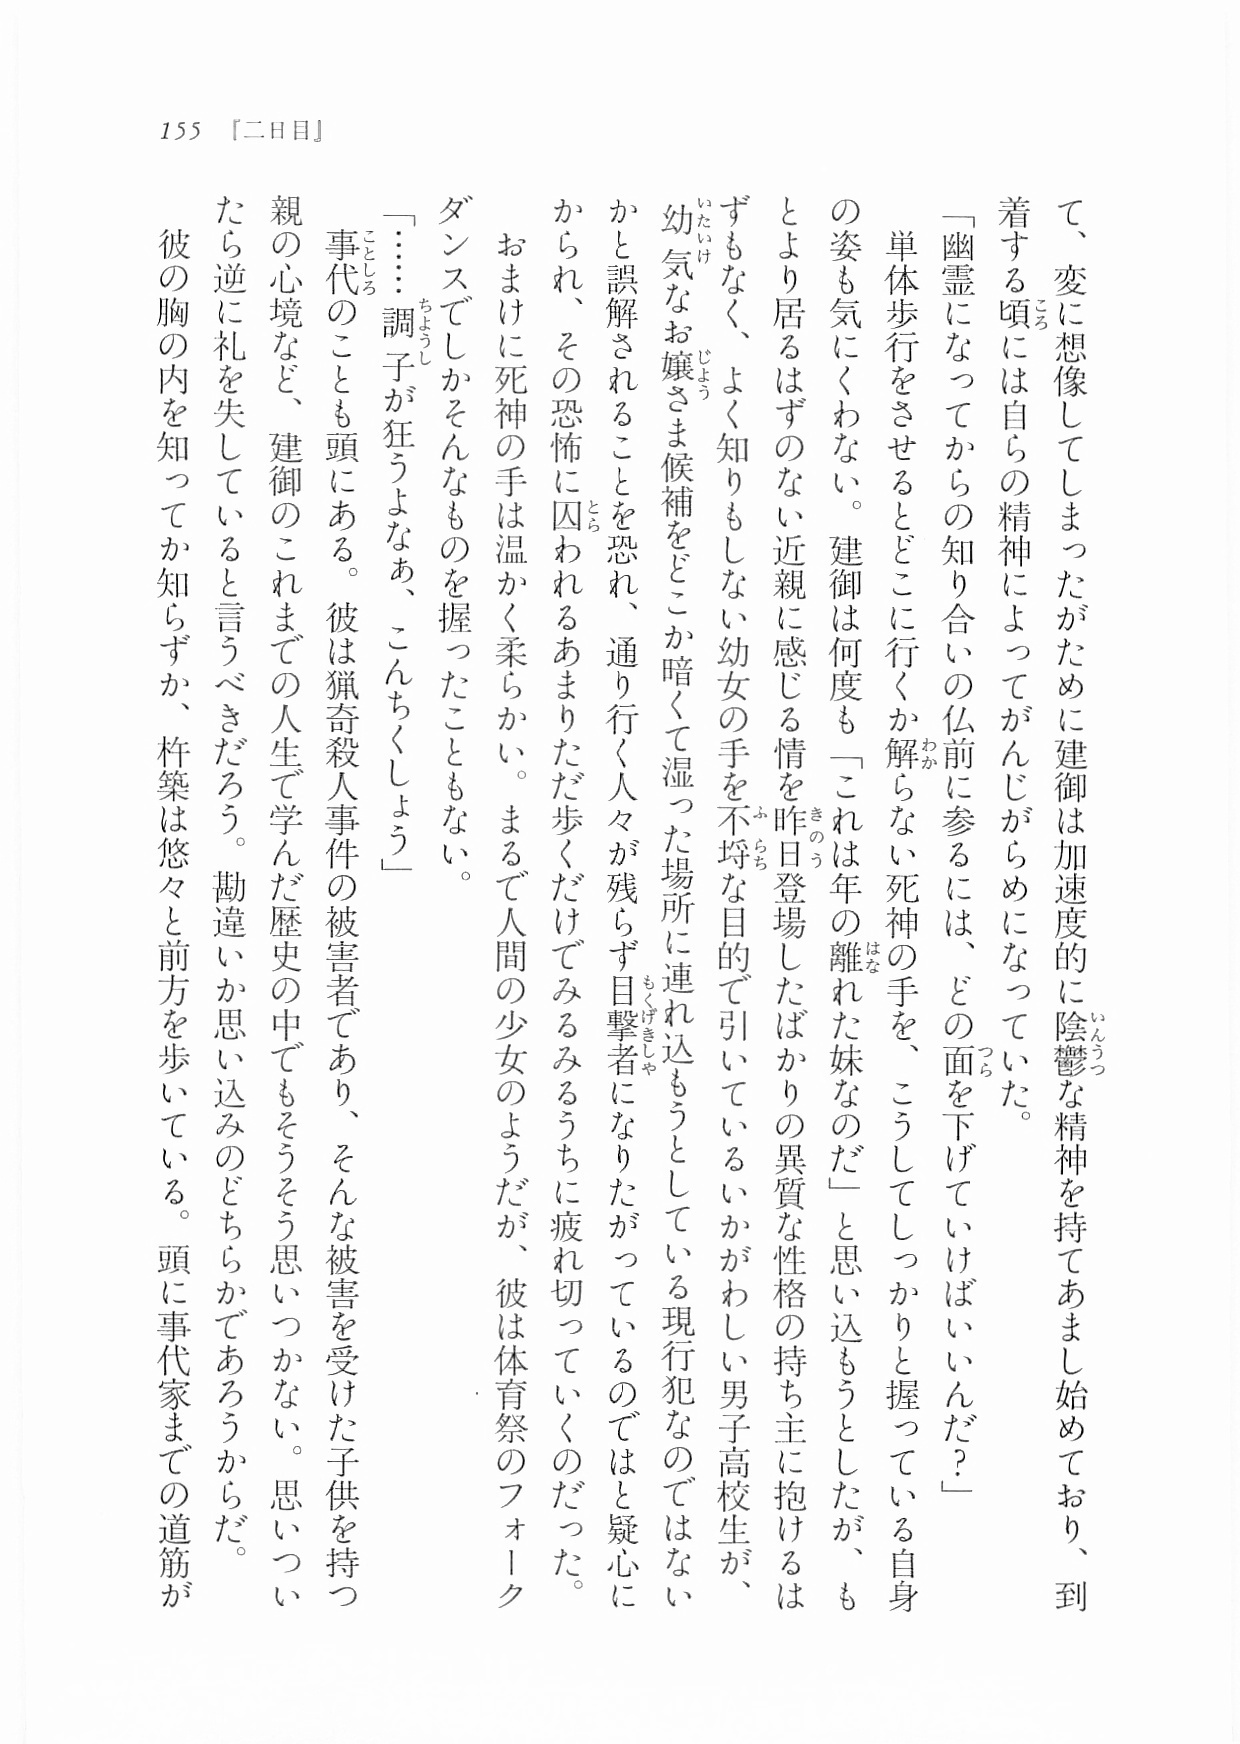 155 『二日目』
て、変に想像してしまったがために建御は加速度的に陰鬱な精神を持てあまし始めており、到
着する頃には自らの精神によってがんじがらめになっていた。
「幽霊になってからの知り合いの仏前に参るには、どの面を下げていけばいいんだ？」
　単体歩行をさせるとどこに行くか解らない死神の手を、こうしてしっかりと握っている自身
の姿も気にくわない。建御は何度も「これは年の離れた妹なのだ」と思い込もうとしたが、も
とより居るはずのない近親に感じる情を昨日登場したばかりの異質な性格の持ち主に抱けるは
ずもなく、よく知りもしない幼女の手を不埒な目的で引いているいかがわしい男子高校生が、
幼気なお嬢さま候補をどこか暗くて湿った場所に連れ込もうとしている現行犯なのではない
かと誤解されることを恐れ、通り行く人々が残らず目撃者になりたがっているのではと疑心に
かられ、その恐怖に囚われるあまりただ歩くだけでみるみるうちに疲れ切っていくのだった。
　おまけに死神の手は温かく柔らかい。まるで人間の少女のようだが、彼は体育祭のフォーク
ダンスでしかそんなものを握ったこともない。
「……調子が狂うよなぁ、こんちくしょう」
　事代のことも頭にある。彼は猟奇殺人事件の被害者であり、そんな被害を受けた子供を持つ
親の心境など、建御のこれまでの人生で学んだ歴史の中でもそうそう思いつかない。思いつい
たら逆に礼を失していると言うべきだろう。勘違いか思い込みのどちらかであろうからだ。
　彼の胸の内を知ってか知らずか、杵築は悠々と前方を歩いている。頭に事代家までの道筋が